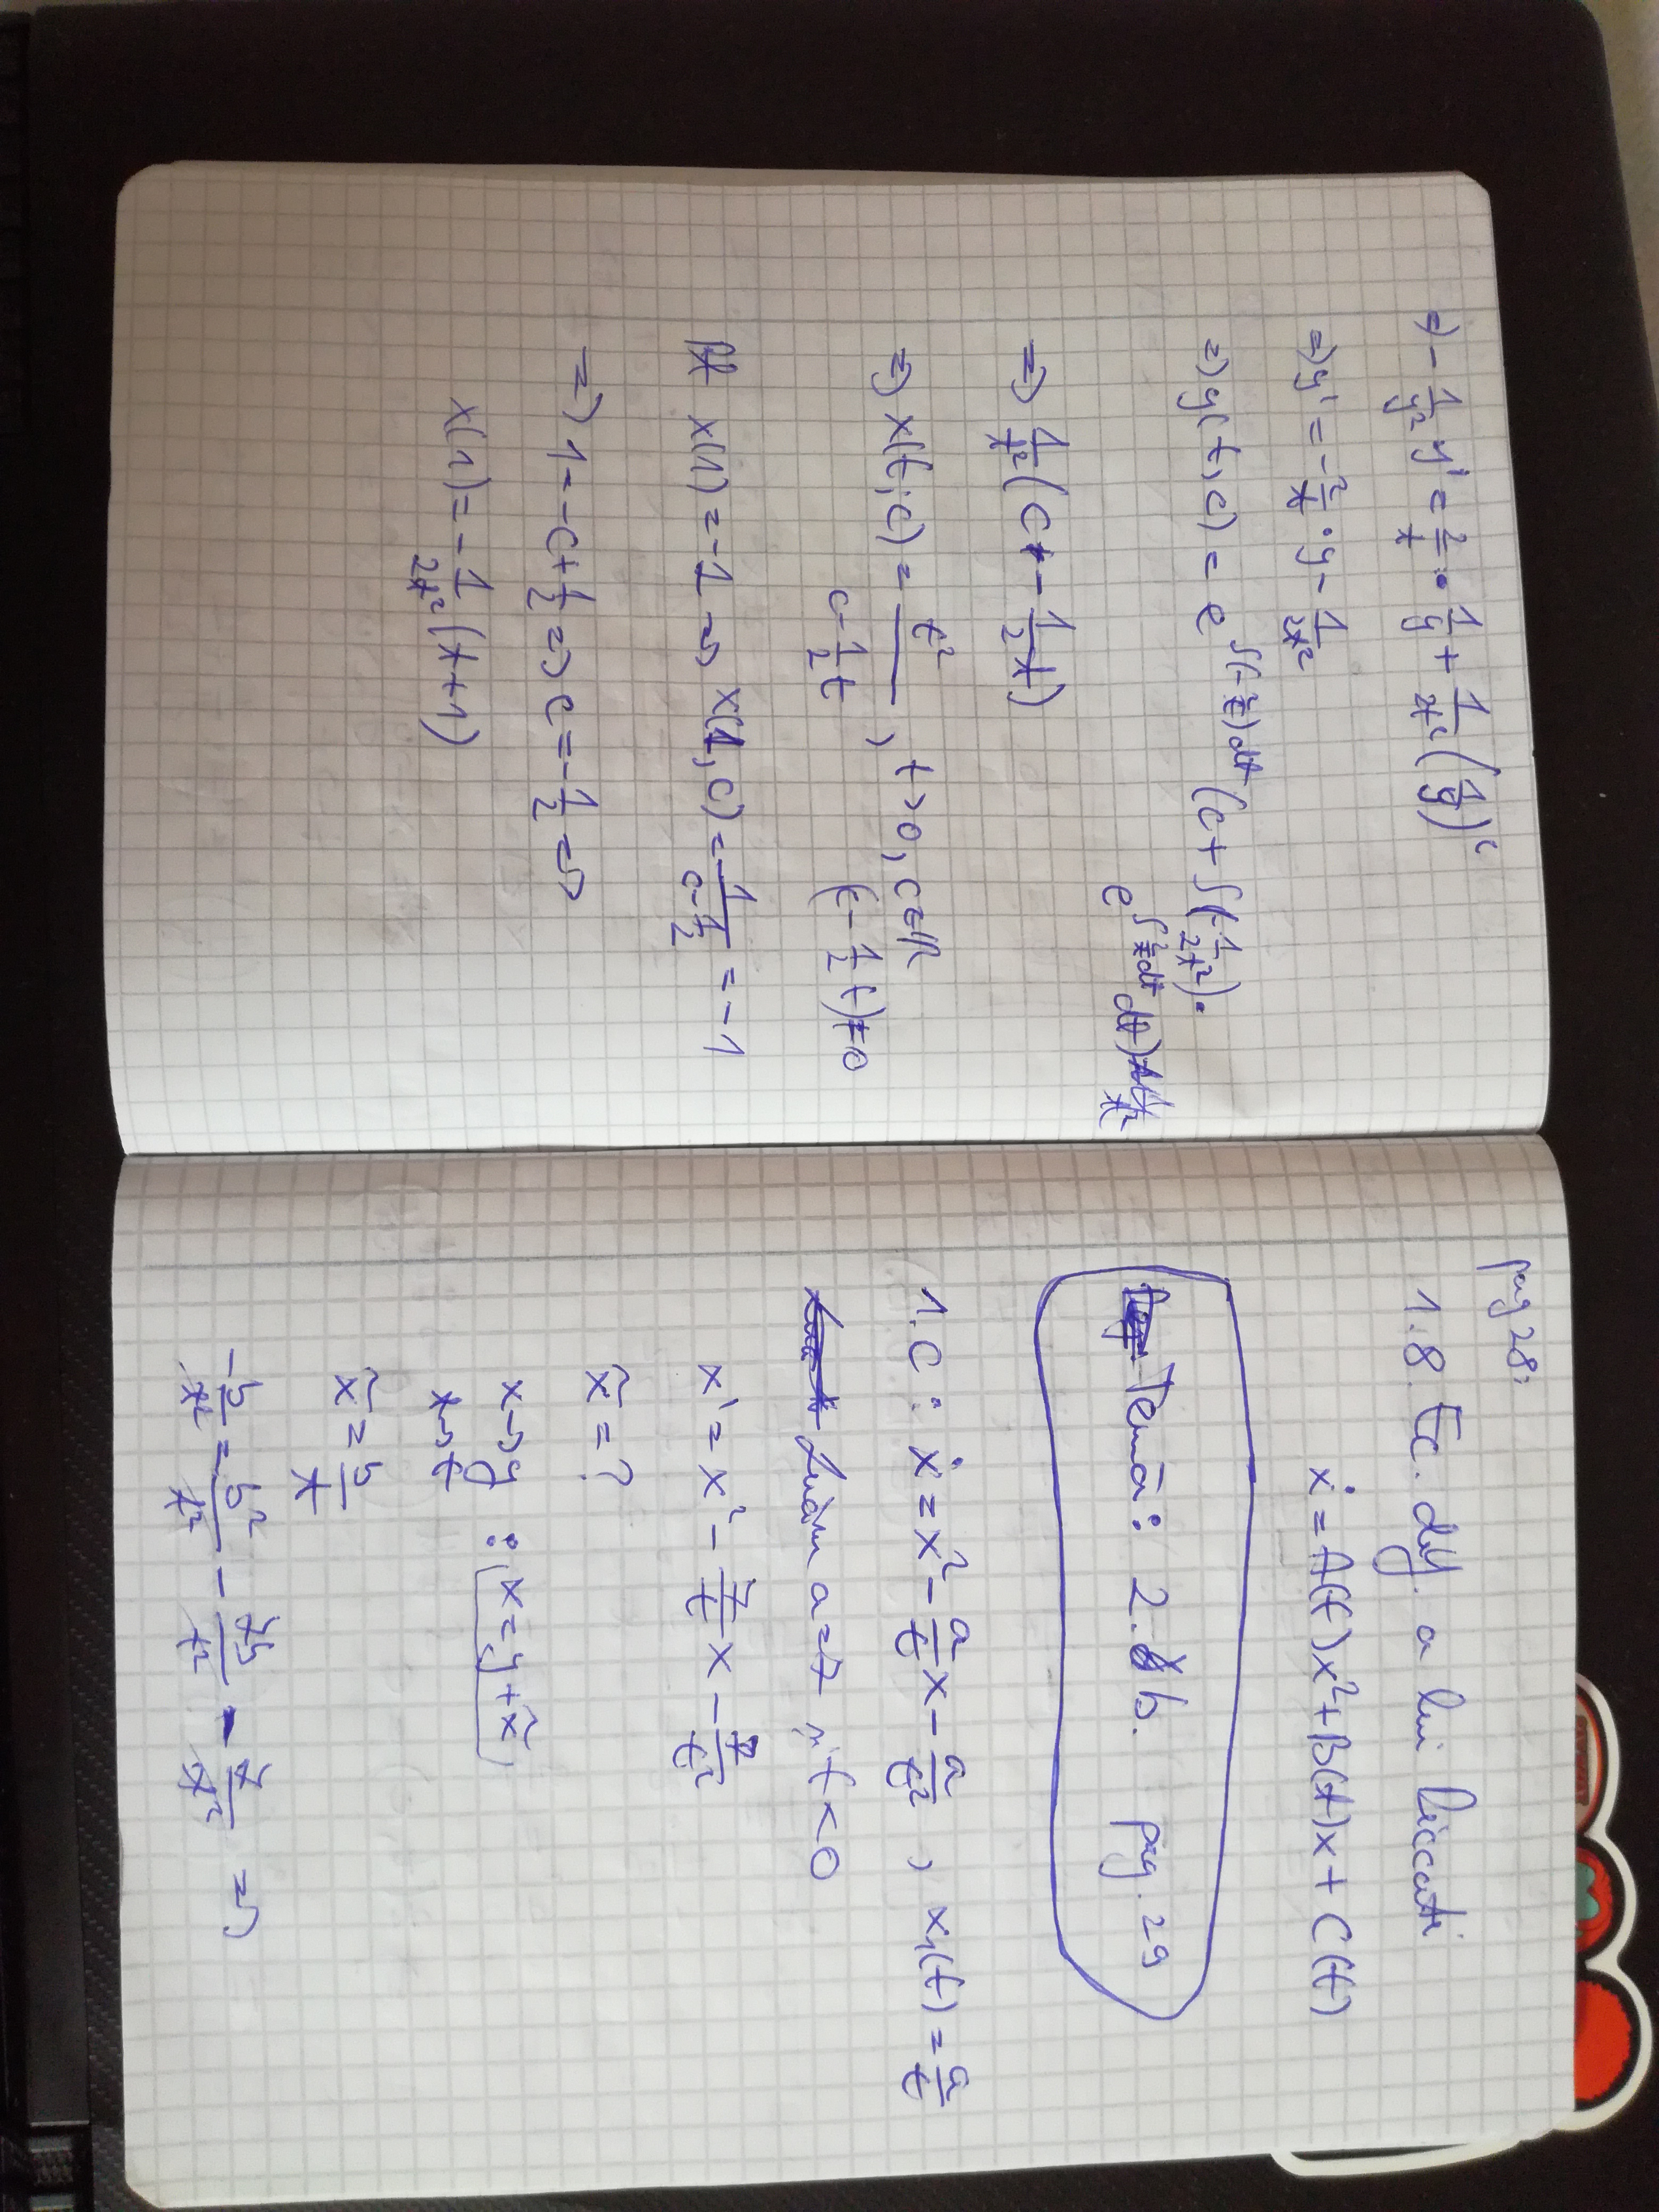 => - 1/y² y' = 2/t · 1/y + 1/2t² (1/y)²
=> y' = -2/t · y - 1/2t²
=> y(t,c) = e^∫(-2/t)dt (c + ∫(-1/2t²) ·
e^∫2/t dt dt)
=> 1/t² (c - 1/2 t)
=> x(t,c) = t²/(c - 1/2 t) , t>0, c∈R
(c - 1/2 t) ≠ 0
x(1) = -1 => x(1,c) = 1/(c - 1/2) = -1
=> 1 = -c + 1/2 => c = -1/2 =>
x(1) = -1/2t² (t+1)
pag 28:
1.8. Ec. dif. a lui Riccati
ẋ = A(t)x² + B(t)x + C(t)
Temă: 2. b. pag. 29
1. c : ẋ = x² - a/t x - a/t² , x₁(t) = a/t
Luăm a=7 și t<0
x' = x² - 7/t x - 7/t²
x̃ = ?
x->y : x = y + x̃
t->t
x̃ = b/t
-b/t² = b²/t² - 7b/t² - 7/t² =>